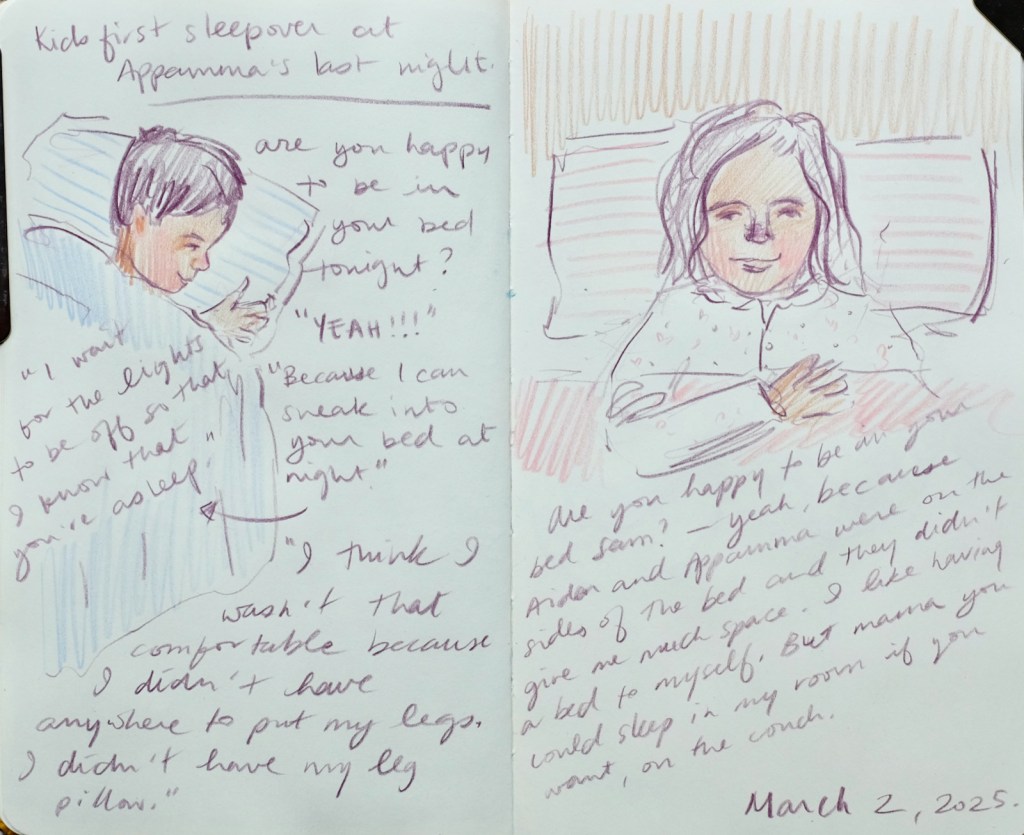 Kids first sleepover at
Appamma's last night.
are you happy
to be in
your bed
tonight?
"YEAH!!!"
"Because I can
sneak into
your bed at
night."
"I want
for the lights
to be off so that
I know that
you're asleep."
"I think I
wasn't that
comfortable because
I didn't have
anywhere to put my legs.
I didn't have my leg
pillow."
Are you happy to be in your
bed Sam? – Yeah, because
Aiden and Appamma were on the
sides of the bed and they didn't
give me much space. I like having
a bed to myself. But mama you
could sleep in my room if you
want, on the couch.
March 2, 2025.